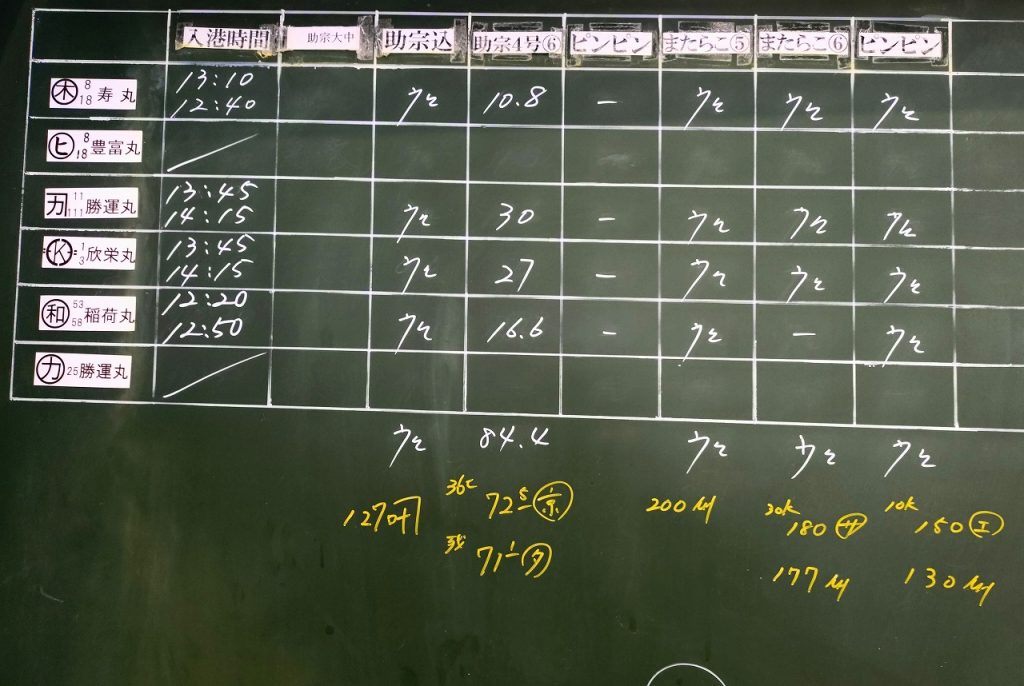 入港時間 助宗大中 助宗込 助宗4号⑥ ピンピン またらこ⑤ またらこ⑥ ピンピン
㊍ 8 18 寿丸 13:10 12:40 ウヒ 10.8 - ウヒ ウヒ ウヒ
ヒ 8 18 豊富丸
カ 11 111 勝運丸 13:45 14:15 ウヒ 30 - ウヒ ウヒ ウヒ
K 1 3 欣栄丸 13:45 14:15 ウヒ 27 - ウヒ ウヒ ウヒ
和 53 58 稲荷丸 12:20 12:50 ウヒ 16.6 - ウヒ - ウヒ
カ 25 勝運丸
ウヒ 84.4 ウヒ ウヒ ウヒ
127 36 72 5 京 200 30k 180 サ 10k 150 エ
残 71 1 タ 177 130